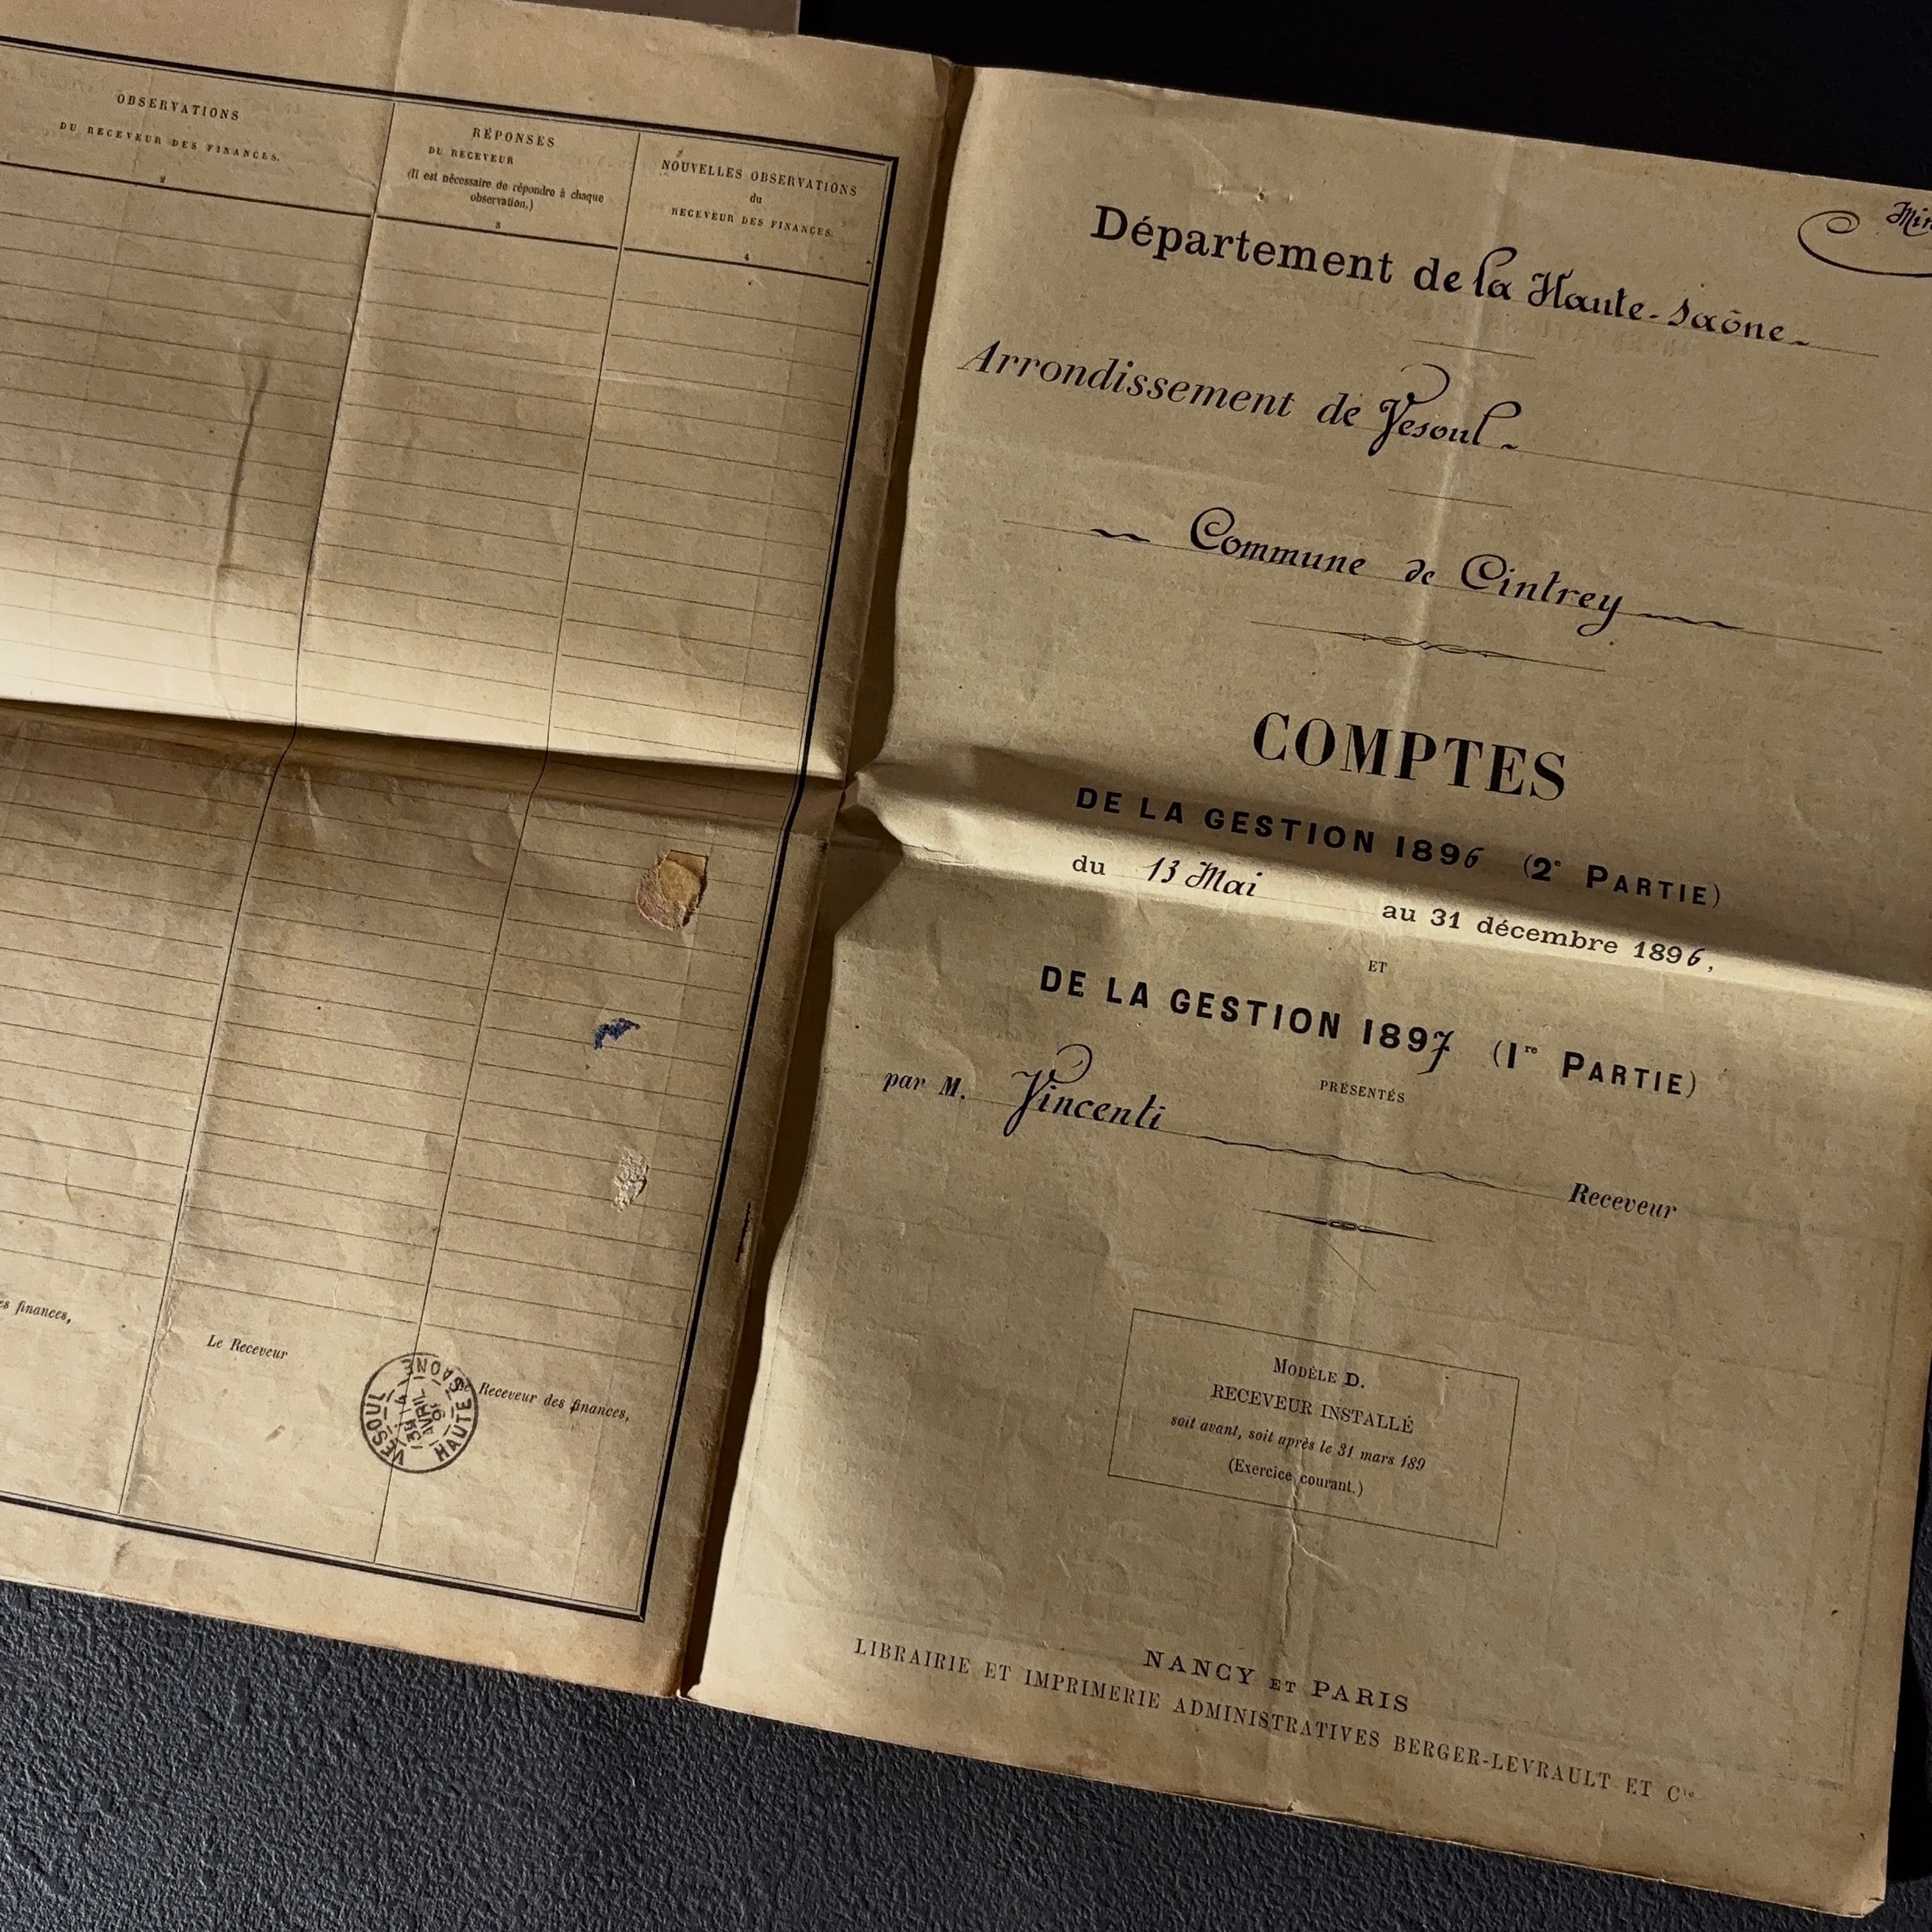 OBSERVATIONS
DU RECEVEUR DES FINANCES.
2
RÉPONSES
DU RECEVEUR
(Il est nécessaire de répondre à chaque
observation.)
3
NOUVELLES OBSERVATIONS
du
RECEVEUR DES FINANCES.
4
es finances,
Le Receveur
Receveur des finances,
VESOUL
HAUTE SAONE
AVRIL
Département de la Haute-Saône
Arrondissement de Vesoul
Commune de Cintrey
COMPTES
DE LA GESTION 1896 (2e PARTIE)
du 13 Mai au 31 décembre 1896,
ET
DE LA GESTION 1897 (1re PARTIE)
PRÉSENTÉS
par M. Vincenti Receveur
MODÈLE D.
RECEVEUR INSTALLÉ
soit avant, soit après le 31 mars 189
(Exercice courant.)
NANCY ET PARIS
LIBRAIRIE ET IMPRIMERIE ADMINISTRATIVES BERGER-LEVRAULT ET Cie